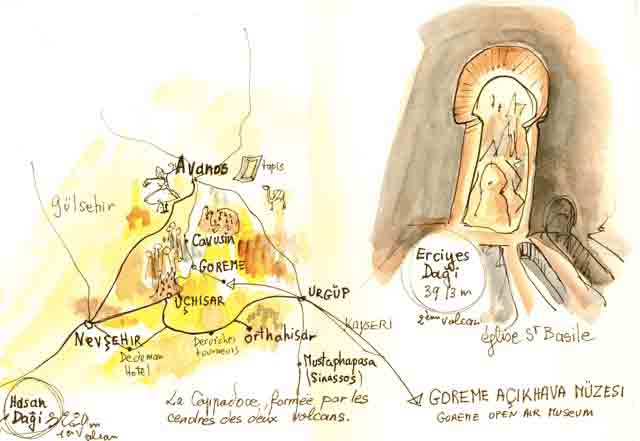 Avanos
tapis
gülsehir
Cavusin
GOREME
UCHISAR
URGÜP
NEVŞEHIR
Dedeman
Hotel
Derviches
tourneurs
orthahisar
KAYSERI
Mustaphapasa
(Sinassos)
Erciyes
Daği
3913 m
2ème volcan
église St Basile
Hasan
Daği
1er volcan
La Cappadoce, formée par les
cendres des deux volcans.
GOREME AÇIKHAVA MÜZESI
GOREME OPEN AIR MUSEUM